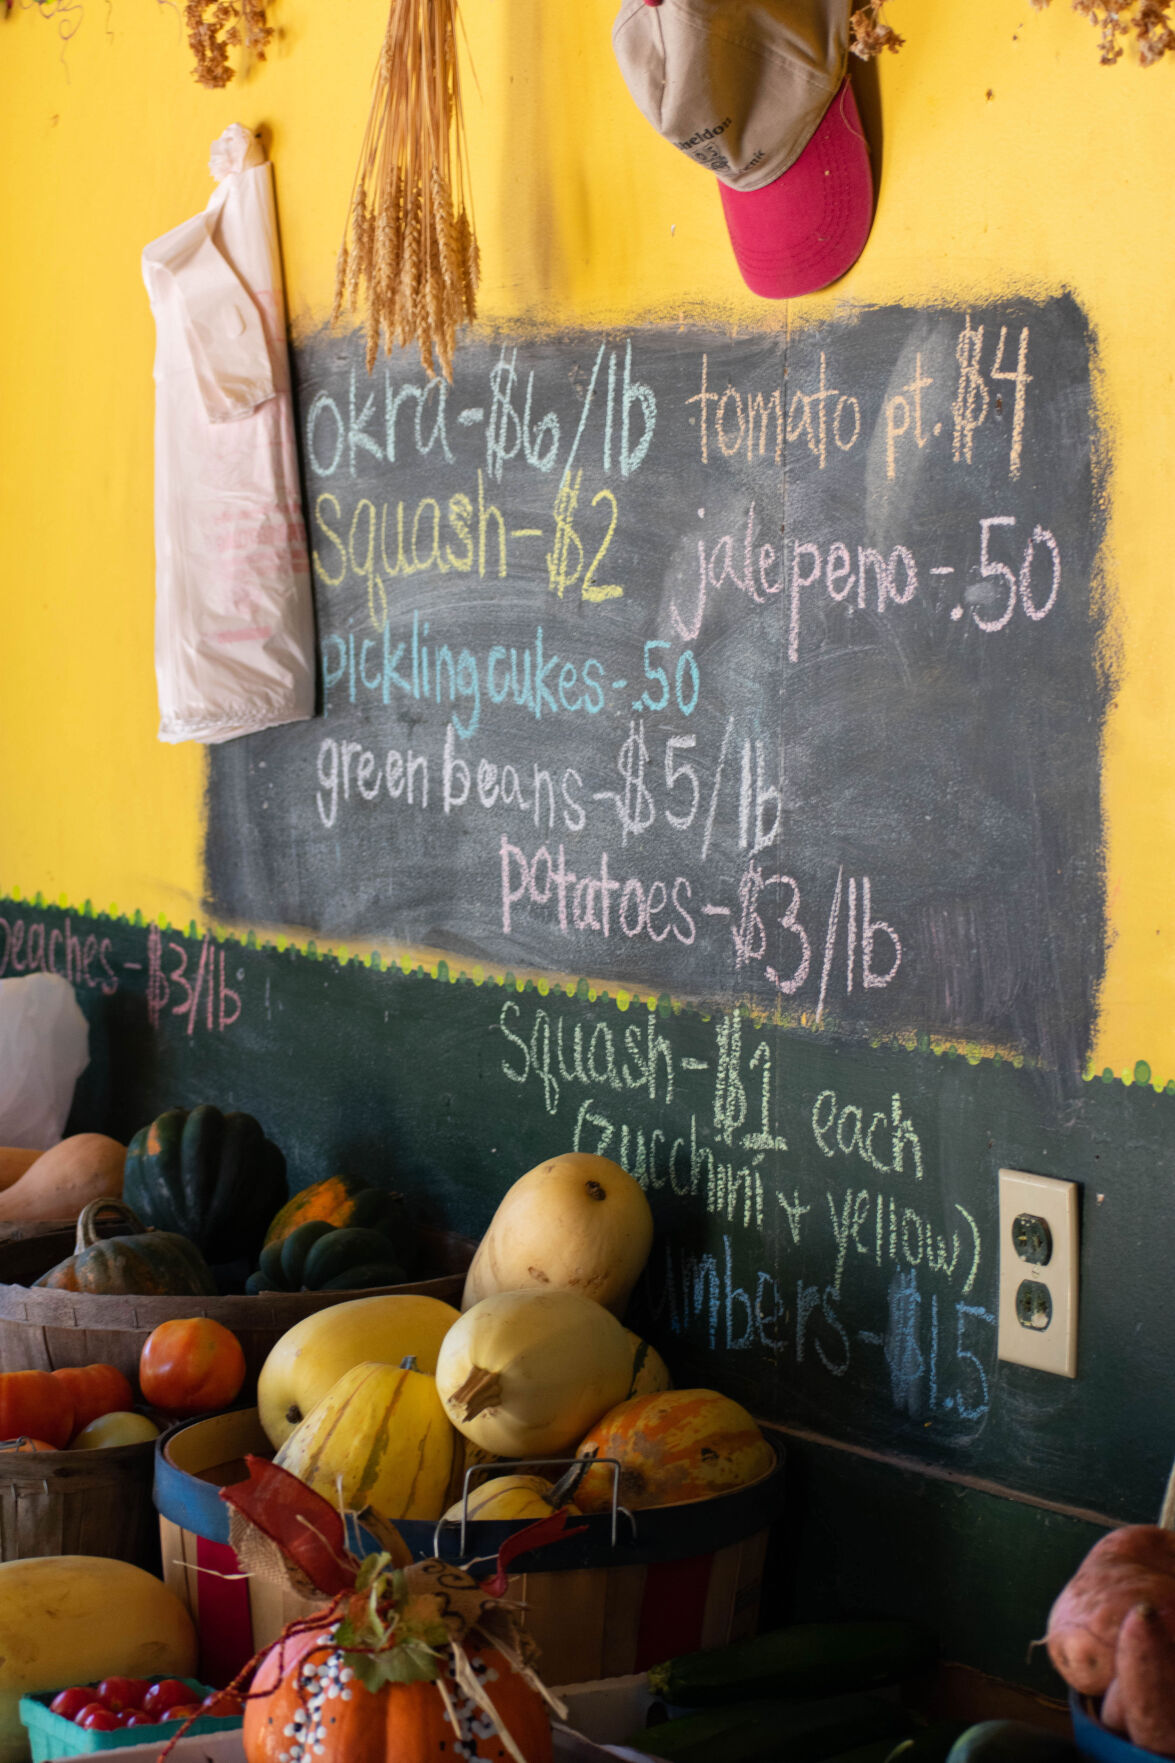 okra-$6/lb
tomato pt. $4
squash-$2
jalepeno-.50
picklingcukes-.50
green beans-$5/lb
potatoes-$3/lb
peaches-$3/lb
squash-$1 each
(zucchini + yellow)
umbers-$1.5
heldon